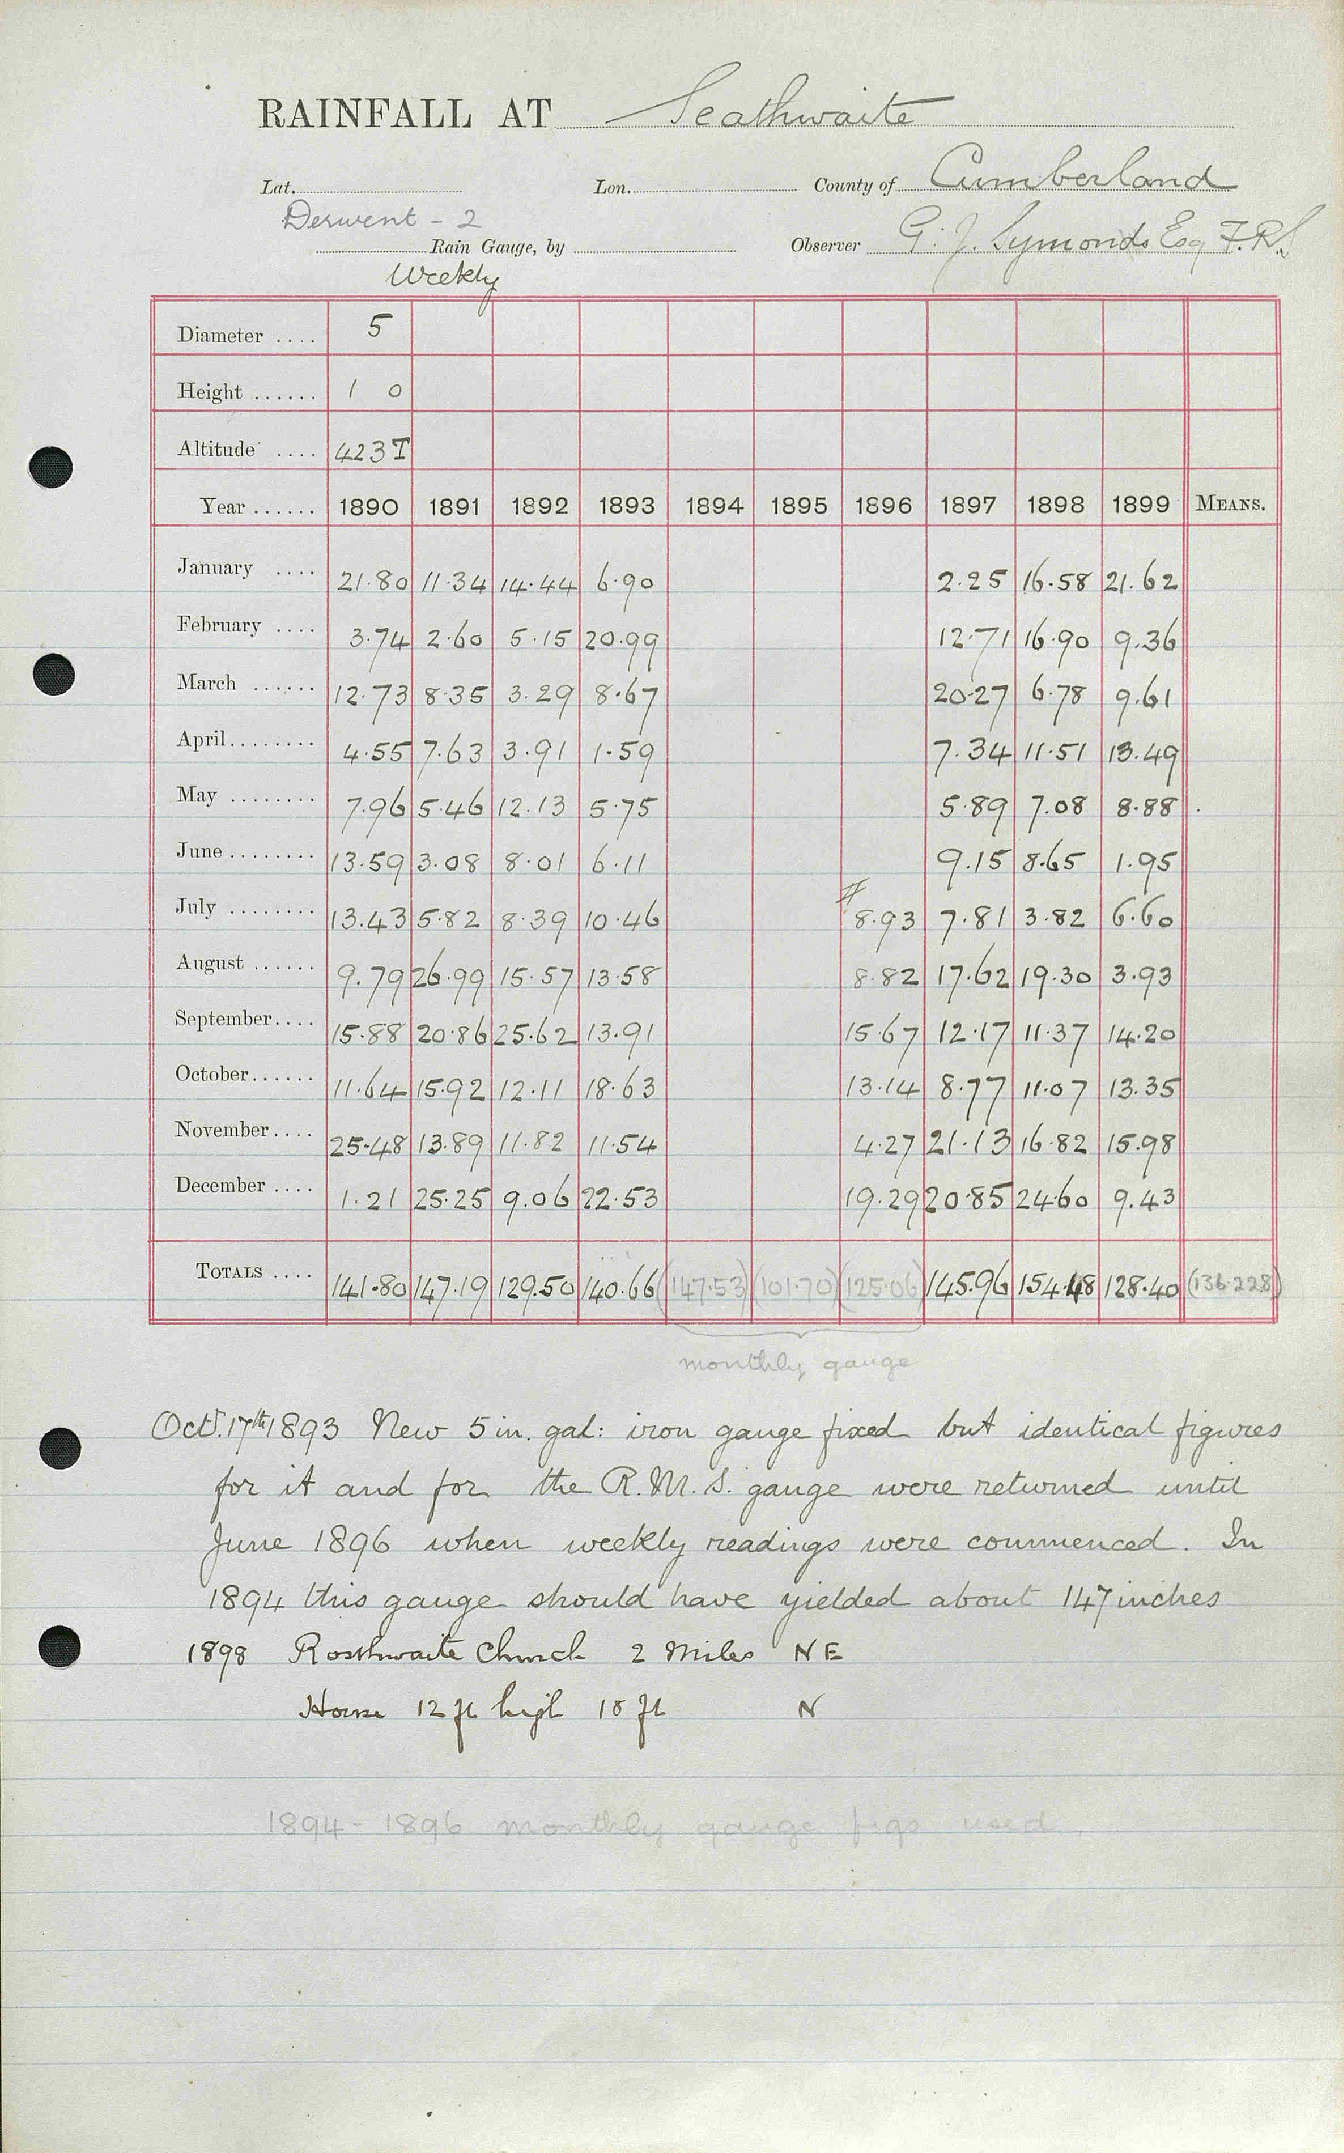 RAINFALL AT Seathwaite
Lat. Lon. County of Cumberland
Derwent - 2
Rain Gauge, by Observer G. J. Symonds Esq F.R.S.
Weekly
Diameter .... 5
Height ...... 1 0
Altitude .... 423 T
Year ...... 1890 1891 1892 1893 1894 1895 1896 1897 1898 1899 MEANS.
January .... 21.80 11.34 14.44 6.90 2.25 16.58 21.62
February .... 3.74 2.60 5.15 20.99 12.71 16.90 9.36
March ...... 12.73 8.35 3.29 8.67 20.27 6.78 9.61
April........ 4.55 7.63 3.91 1.59 7.34 11.51 13.49
May ........ 7.96 5.46 12.13 5.75 5.89 7.08 8.88
June........ 13.59 3.08 8.01 6.11 9.15 8.65 1.95
July ........ 13.43 5.82 8.39 10.46 8.93 7.81 3.82 6.60
August ...... 9.79 26.99 15.57 13.58 8.82 17.62 19.30 3.93
September.... 15.88 20.86 25.62 13.91 15.67 12.17 11.37 14.20
October...... 11.64 15.92 12.11 18.63 13.14 8.77 11.07 13.35
November.... 25.48 13.89 11.82 11.54 4.27 21.13 16.82 15.98
December .... 1.21 25.25 9.06 22.53 19.29 20.85 24.60 9.43
TOTALS .... 141.80 147.19 129.50 140.66 (147.53) (101.70) (125.06) 145.96 154.48 128.40 (136.228)
monthly gauge
Oct. 17th 1893 New 5 in. gal: iron gauge fixed but identical figures
for it and for the R.M.S. gauge were returned until
June 1896 when weekly readings were commenced. In
1894 this gauge should have yielded about 147 inches
1898 Rosthwaite Church 2 Miles NE
House 12 ft high 18 ft N
1894 - 1896 monthly gauge figs used.